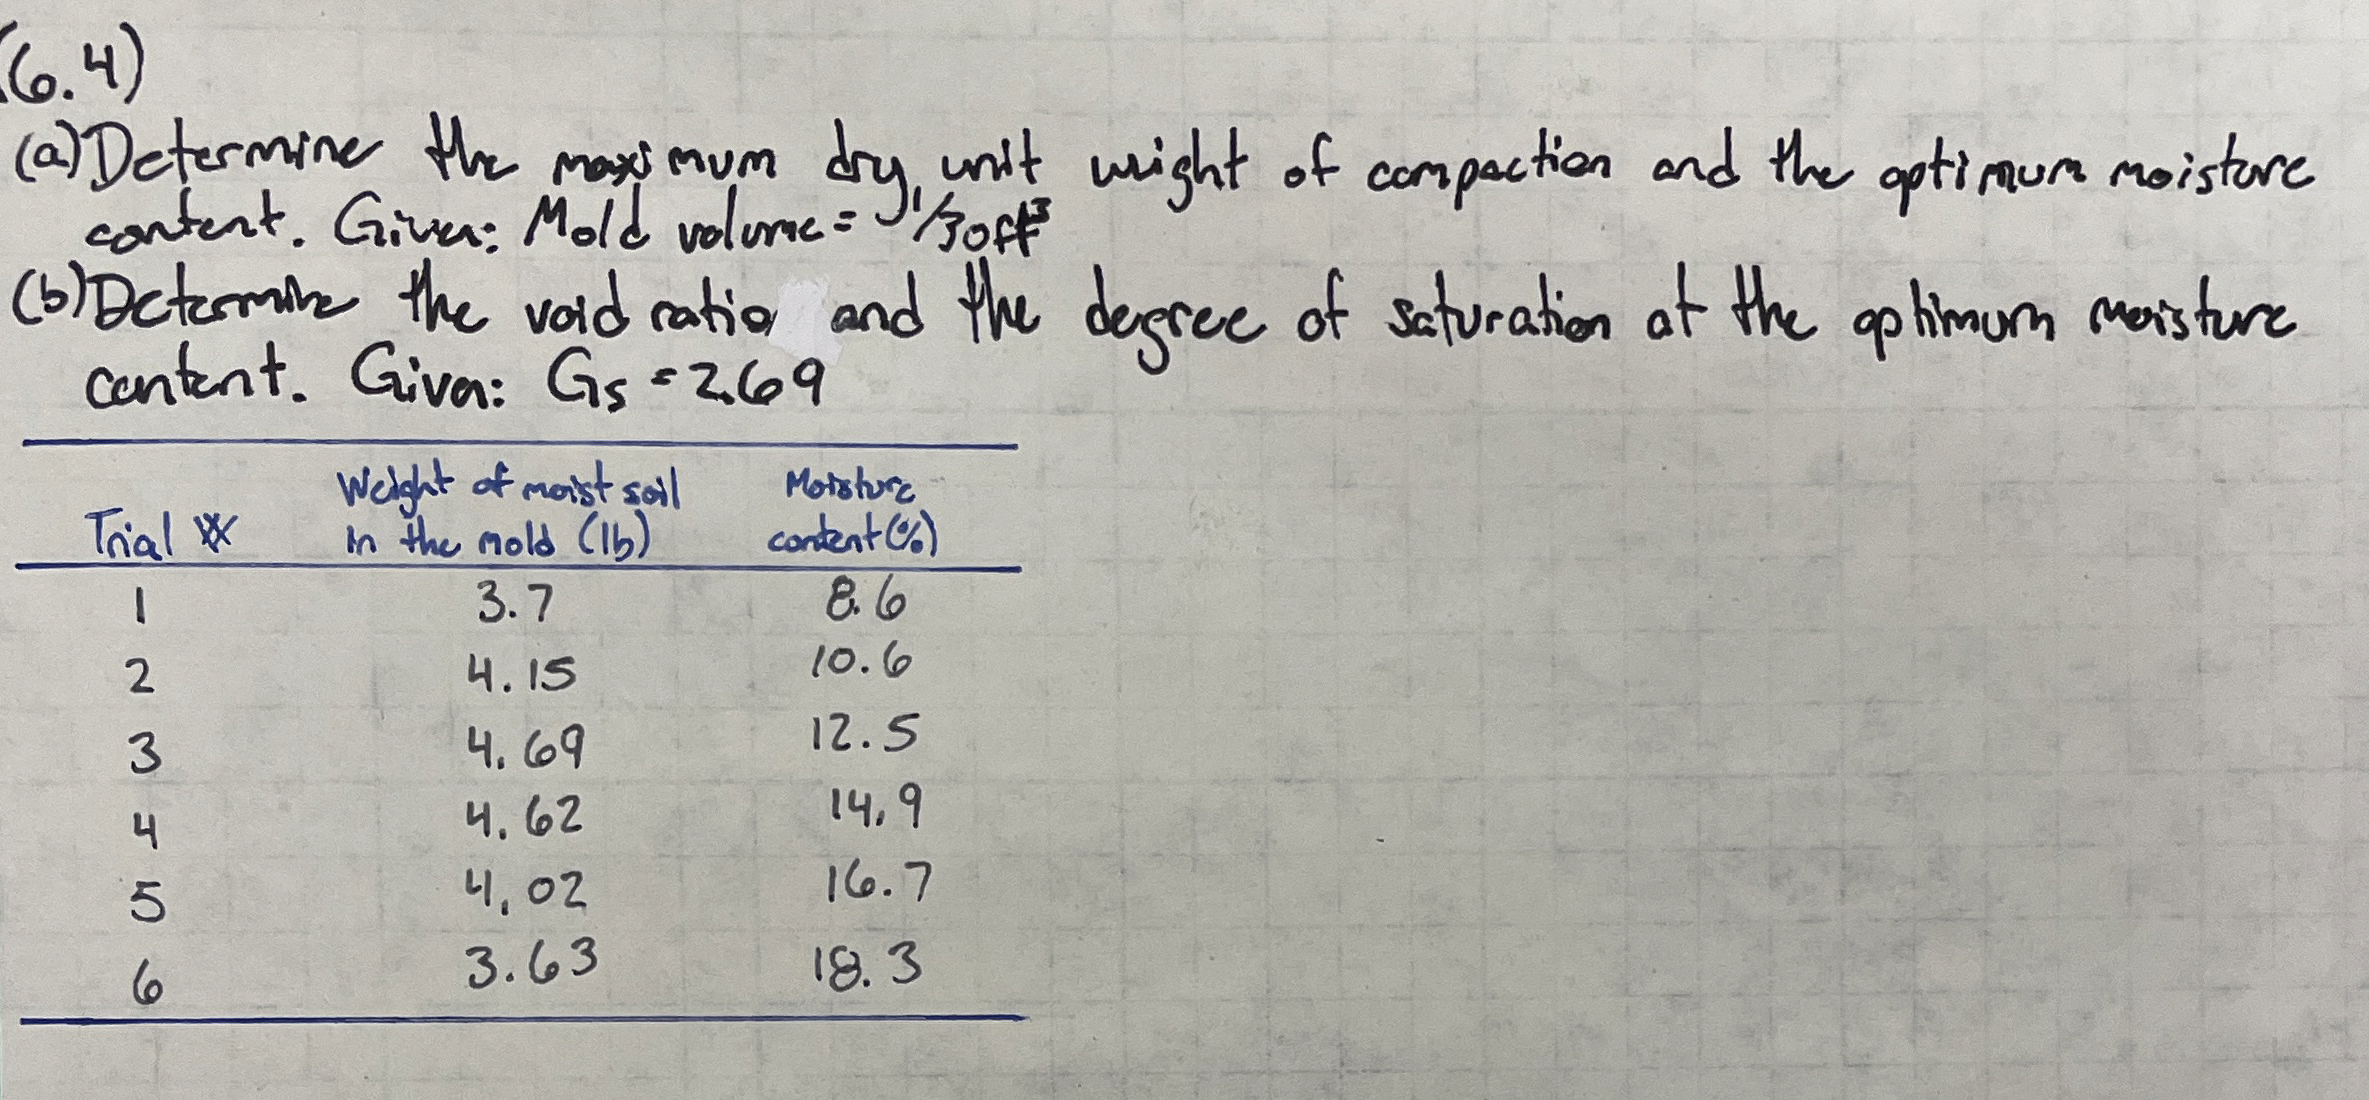 (6.4)
(a) Determine the maximum dry unit weight of compaction and the optimum moisture
content. Given: Mold volume = 1/30 ft³
(b) Determine the void ratio and the degree of saturation at the optimum moisture
content. Given: Gs = 2.69
Weight of moist soil Moisture
Trial # in the mold (lb) content (%)
1 3.7 8.6
2 4.15 10.6
3 4.69 12.5
4 4.62 14.9
5 4.02 16.7
6 3.63 18.3